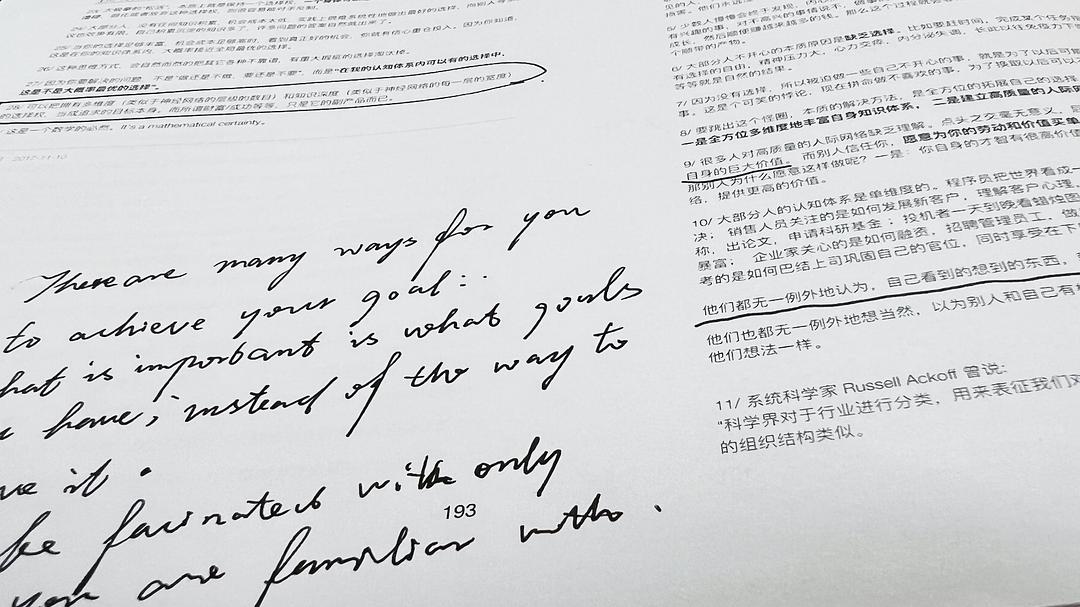 26/这种思维方式，会自然而然的把其它各种不靠谱，有重大瑕疵的选择淘汰掉。
27/因为你要解决的问题，不是"做还是不做，要还是不要"，而是"在我的认知体系内可以有的选择中，
这是不是大概率最优的选择"。
28/可以把拥有多维度（类似于神经网络的层级的数目）和知识深度（类似于神经网络的每一层的宽度）
的选择权，当成追求的目标本身，而所谓财富/成功等等，只是它的副产品而已。
这是一个数学的必然，It's a mathematical certainty。
2017-11-10
There are many ways for you
to achieve your goal:
what is important is what goals
have, instead of the way to
it.
be facinated with only
you are familiar with.
193
6/大部分人不开心的本质原因是缺乏选择。比如要赶时间，完成某个任务
有选择的自由，精神压力大，心力交瘁，内分泌失调，长此以往免疫力下
等等就是自然的结果。
7/因为没有选择，所以被迫做一些自己不开心的事，就是为了以后可
事。这是个可笑的悖论，现在拼命做不喜欢的事，为了换取以后可以
8/要跳出这个怪圈，本质的解决方法，是全方位的拓展自己的选择
一是全方位多维度地丰富自身知识体系，二是建立高质量的人际网
9/很多人对高质量的人际网络缺乏理解。点头之交毫无意义，
自身的巨大价值。而别人信任你，愿意为你的劳动和价值买单
那别人为什么愿意这样做呢？一是：你自身的才智有很高价值
络，提供更高的价值。
10/大部分人的认知体系是单维度的。程序员把世界看成一
决；销售人员关注的是如何发展新客户，理解客户心理，
称，出论文，申请科研基金；投机者一天到晚看蜡烛图
暴富；企业家关心的是如何融资，招聘管理员工，做
考的是如何巴结上司巩固自己的官位，同时享受在下
他们都无一例外地认为，自己看到的想到的东西，
他们也都无一例外地想当然，以为别人和自己有
他们想法一样。
11/系统科学家 Russell Ackoff 曾说:
"科学界对于行业进行分类，用来表征我们对
的组织结构类似。